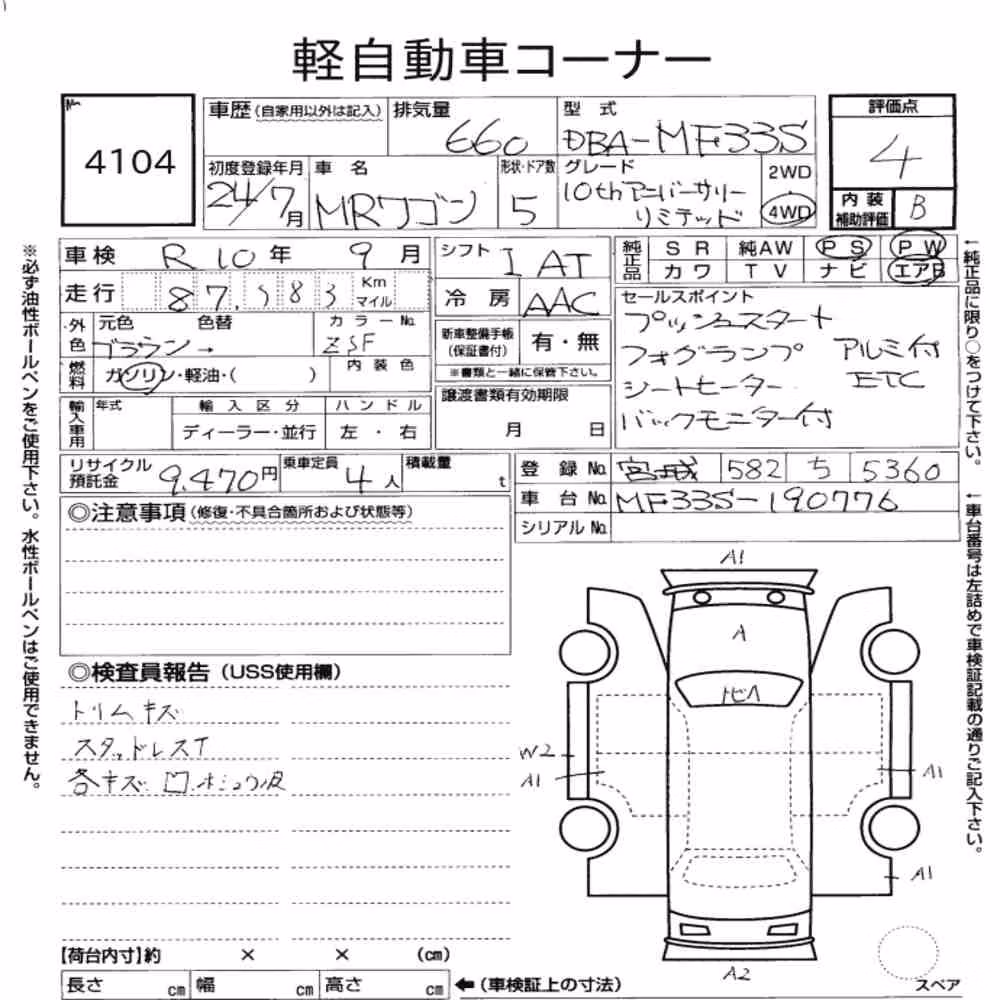 軽自動車コーナー
No.
4104
車歴(自家用以外は記入)
排気量
660
型式
DBA-MF33S
評価点
4
初度登録年月
24/7月
車名
MRワゴン
形状・ドア数
5
グレード
10thアニバーサリー
リミテッド
2WD
4WD
内装
補助評価
B
車検
R10年 9月
シフト
I AT
純正品
SR 純AW PS PW
カワ TV ナビ エアB
走行
87,583
Km
マイル
冷房
AAC
セールスポイント
プッシュスタート
フォグランプ アルミ付
シートヒーター ETC
バックモニター付
外色
元色 色替
ブラウン→
カラーNo.
ZSF
新車整備手帳
(保証書付)
有・無
※書類と一緒に保管下さい。
燃料
ガソリン・軽油・( )
内装色
譲渡書類有効期限
月 日
輸入車用
年式
輸入区分
ディーラー・並行
ハンドル
左・右
リサイクル
預託金
9,470円
乗車定員
4人
積載量
t
登録No.
宮城 582 ち 5360
車台No.
MF33S-190776
シリアルNo.
◎注意事項(修復・不具合箇所および状態等)
◎検査員報告(USS使用欄)
トリムキズ
スタッドレスT
各キズ 凹 ホシュウ波
A1
A
トビA
W2
A1
A1
A1
A2
スペア
【荷台内寸】約 × × (cm)
長さ cm 幅 cm 高さ cm
←(車検証上の寸法)
※必ず油性ボールペンをご使用下さい。水性ボールペンはご使用できません。
←純正品に限り○をつけて下さい。
←車台番号は左詰めで車検証記載の通りご記入下さい。